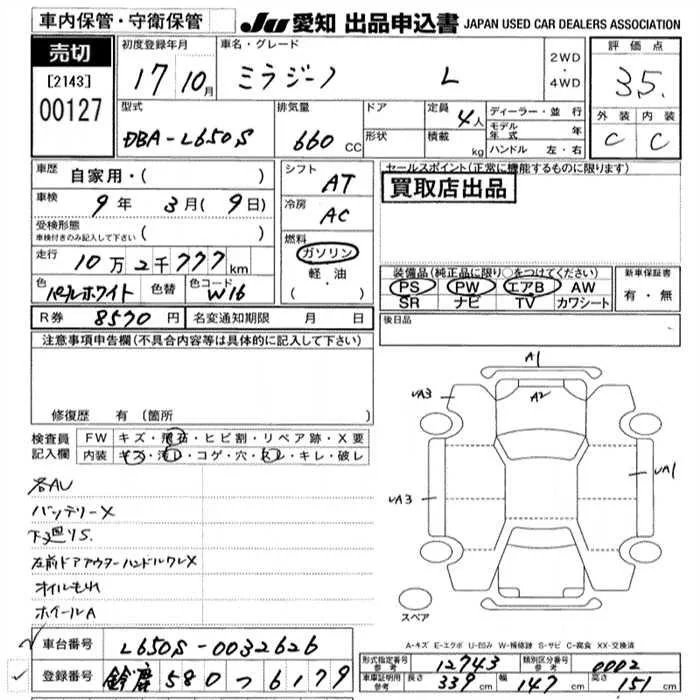 車内保管・守衛保管
JU 愛知 出品申込書 JAPAN USED CAR DEALERS ASSOCIATION
売切
[2143]
00127
初度登録年月
17 10月
車名・グレード
ミラジーノ L
2WD
・
4WD
評価点
35.
外装 内装
C C
型式
DBA-L650S
排気量
660 CC
ドア
形状
定員 4人
積載 kg
ディーラー・並行
モデル年式 年
ハンドル 左・右
車歴 自家用・( )
車検 9年 3月(9日)
受検形態
車検付きのみ記入して下さい ( )
走行 10万2千777km
色 パールホワイト 色替 色コード W16
シフト AT
冷房 AC
燃料
ガソリン
軽油
( ・ )
セールスポイント(正常に機能するものに限ります)
買取店出品
装備品(純正品に限り○をつけてください)
PS PW エアB AW
SR ナビ TV カワシート
新車保証書
有・無
R券 8570円 名変通知期限 月 日
後日品
注意事項申告欄(不具合内容等は具体的に記入して下さい)
修復歴 有(箇所
検査員 FW キズ・飛石・ヒビ割・リペア跡・X要
記入欄 内装 キズ・汚レ・コゲ・穴・スレ・キレ・破レ
各AU
バッテリーX
下廻りS.
左前ドアアウターハンドルワレX
オイルもれ
ホイールA
A1
A2
UA3
UA3
UA1
スペア
A-キズ E-エクボ U-凹み W-補修跡 S-サビ C-腐食 XX-交換済
車台番号 L650S-0032626
登録番号 鈴鹿 580 つ 6179
形式指定番号 参考 12743 類別区分番号 参考 0002
車庫証明用 参考 長さ 339cm 幅 147cm 高さ 151cm